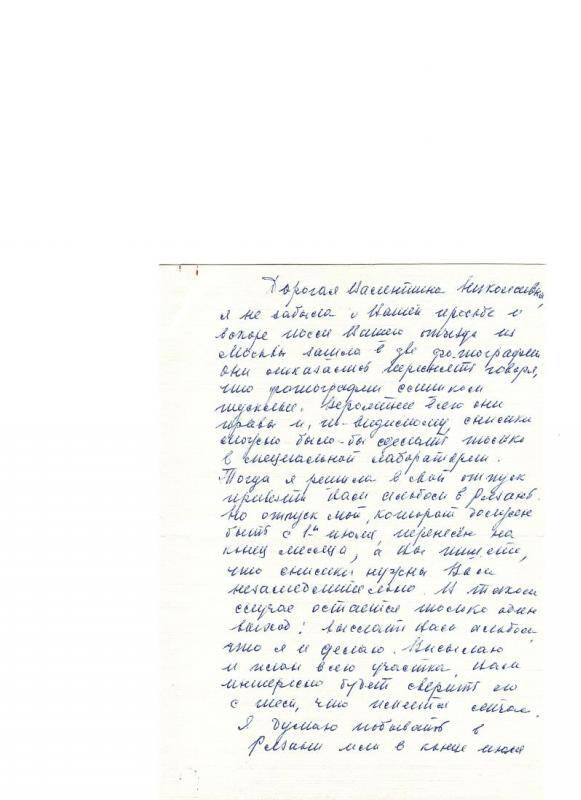 Дорогая Валентина Николаевна,
я не забыла о Вашей просьбе и
вскоре после Вашего отъезда из
Москвы зашла в две фотографии
они отказались переснять говоря,
что фотографии слишком
тусклые. Вероятнее всего они
правы и, по-видимому, снимки
можно было-бы сделать только
в специальной лаборатории.
Тогда я решила в свой отпуск
привезти Вам альбом в Рязань.
Но отпуск мой, который должен
быть с 1го июля, перенесён на
конец месяца, а Вы пишете,
что снимки нужны Вам
незамедлительно. В таком
случае остается только один
выход: выслать Вам альбом,
что я и делаю. Высылаю
и план всего участка, Вам
интересно будет сверить его
с тем, что имеется сейчас.
Я думаю побывать в
Рязани или в конце июля